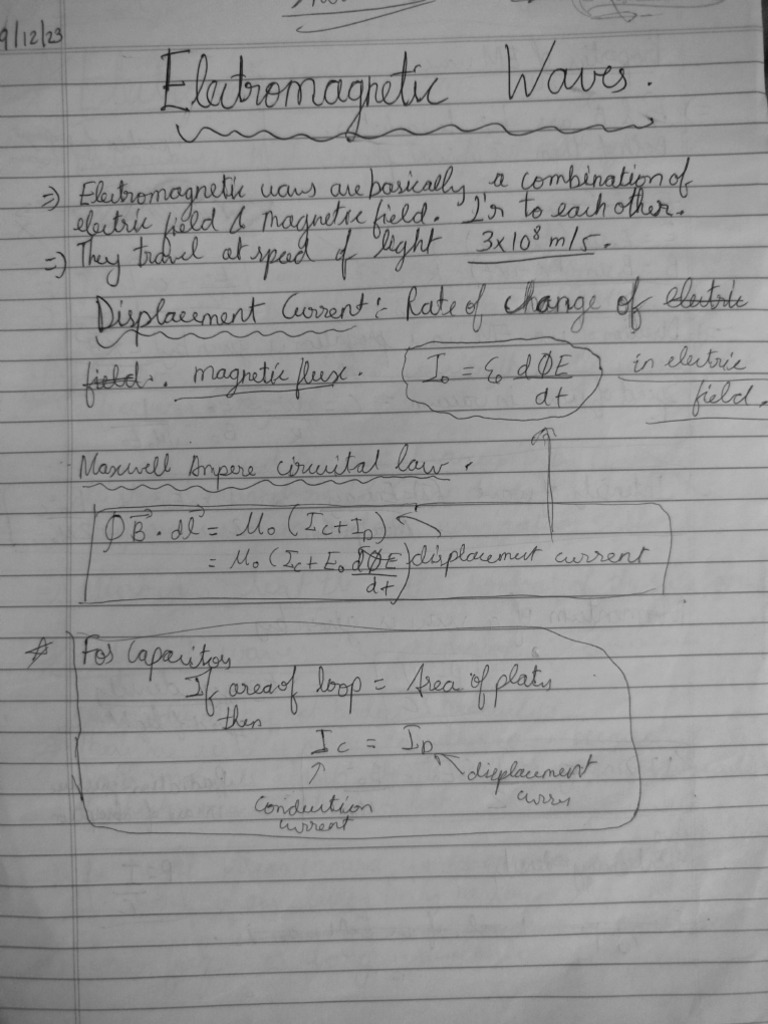 9/12/23
Electromagnetic Waves.
=) Electromagnetic waves are basically a combination of
electric field & magnetic field. I'r to each other.
=) They travel at speed of light 3x10⁸ m/s.
Displacement Current: Rate of change of electric
field.. magnetic flux. I₀ = ε₀ dØE/dt in electric
field.
Maxwell Ampere circuital law.
∮B⃗·dl⃗ = M₀ (Ic+ID)
= M₀ (Ic + E₀ dØE/dt) displacement current
☆ For Capacitor
If area of loop = Area of plats
then
Ic = ID
displacement
conduction
current